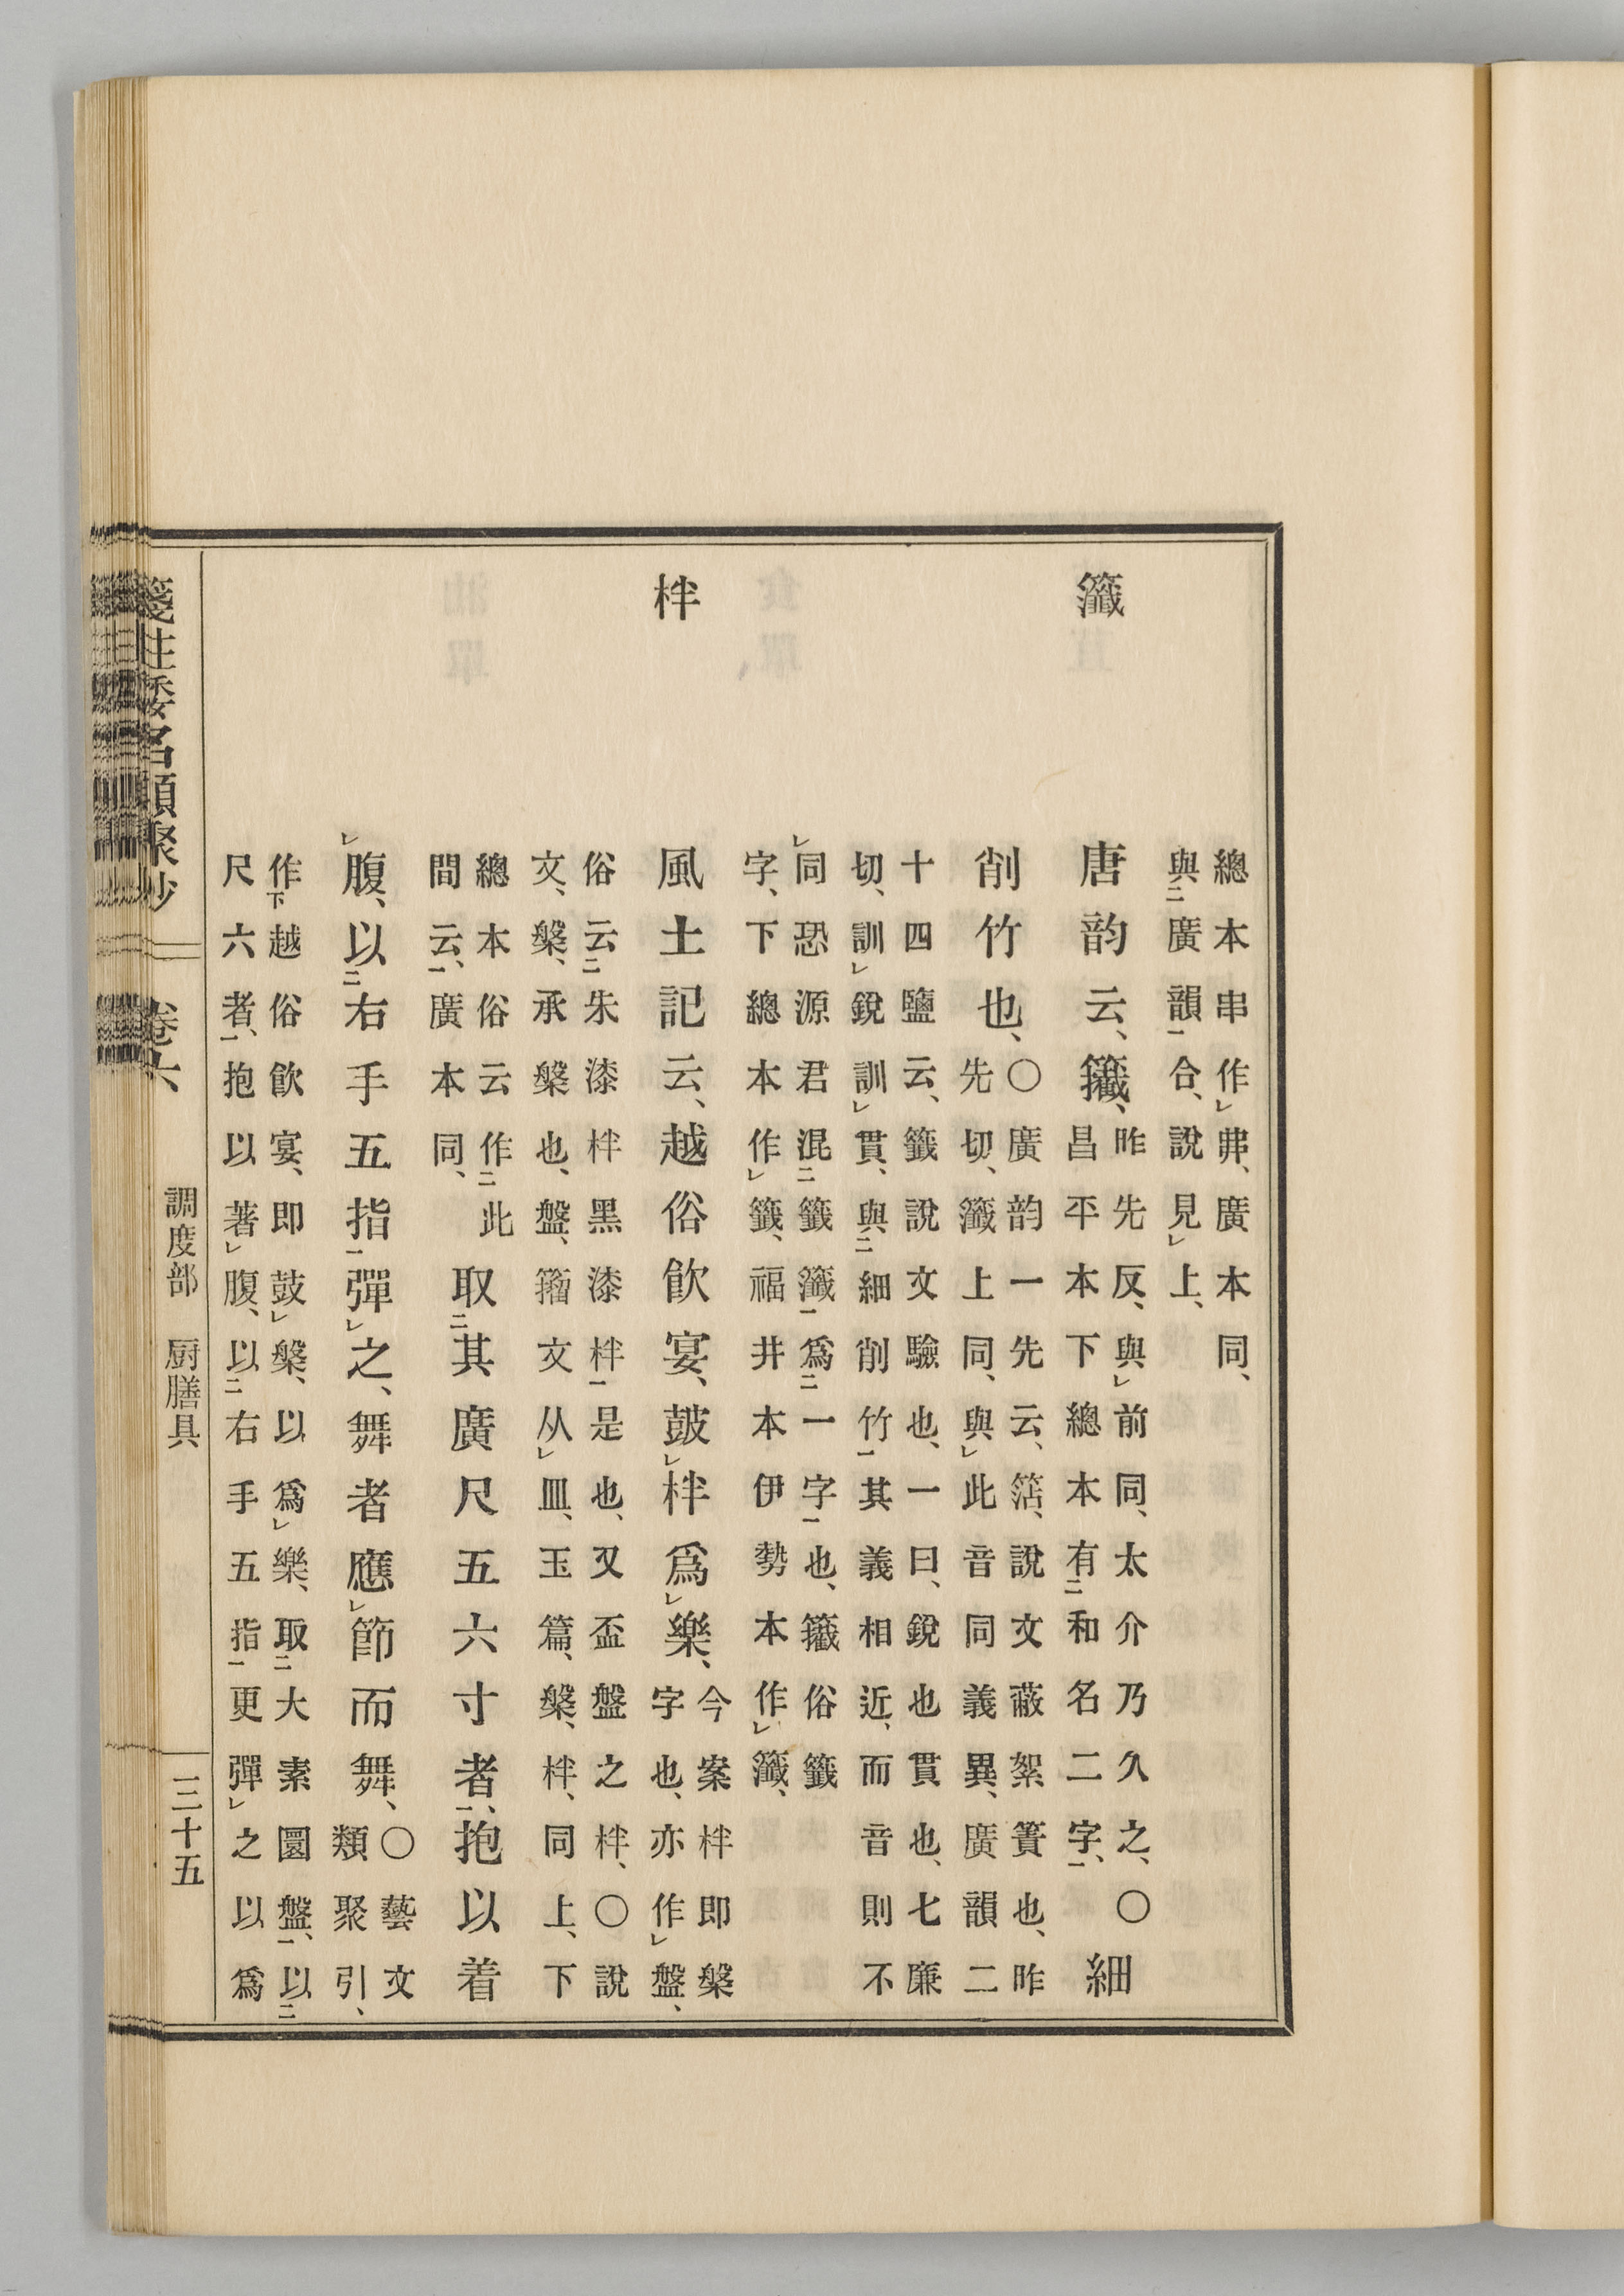 籖
唐韵云、籖、
昨先反、與レ前同、太介乃久之、〇
昌平本下總本有二和名二字、一
細
總本串作レ弗、廣本同、
與二廣韻一合、說見レ上、
削竹也、
〇廣韵一先云、、說文蔽絮簀也、昨
先切、籖上同、與レ此音同義異、廣韻二
十四鹽云、籤說文驗也、一曰、銳也貫也、七廉
切、訓レ銳訓レ貫、與二細削竹一其義相近、而音則不
レ同恐源君混二籤籖一爲二一字一也、籖俗籤
字、下總本作レ籤、福井本伊勢本作レ籖、
柈
風土記云、越俗飮宴、鼓レ柈爲レ樂、
今案柈即槃
字也、亦作レ盤、
俗云二朱漆柈黑漆柈一是也、又盃盤之柈、〇說
文、槃、承槃也、盤、籀文从レ皿、玉篇、槃、柈、同上、下
總本俗云作二此
間云、一廣本同、
取二其廣尺五六寸者、一抱以着
レ腹、以二右手五指一彈レ之、舞者應レ節而舞、
〇藝文
類聚引、
作下越俗飮宴、即鼓レ槃、以爲レ樂、取二大素圜盤、一以二
尺六者、一抱以著レ腹、以二右手五指一更彈レ之以爲
箋注倭名類聚抄
卷六
調度部　厨膳具
三十五